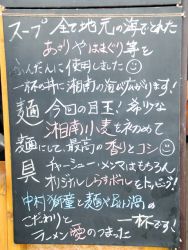 スープ 全て地元の海でとれた
あさりやはまぐり等を
ふんだんに使用しました☺
一杯の丼に湘南の海が広がります!
麺 今回の目玉! 希少な
湘南小麦を初めて
麺にして、最高の香りとコシ☺
具 チャーシュー・メンマはもちろん
オリジナルしらすボールをトッピング!
中村獅童と麺や
こだわりと 一杯です!
ラーメン愛のつまった